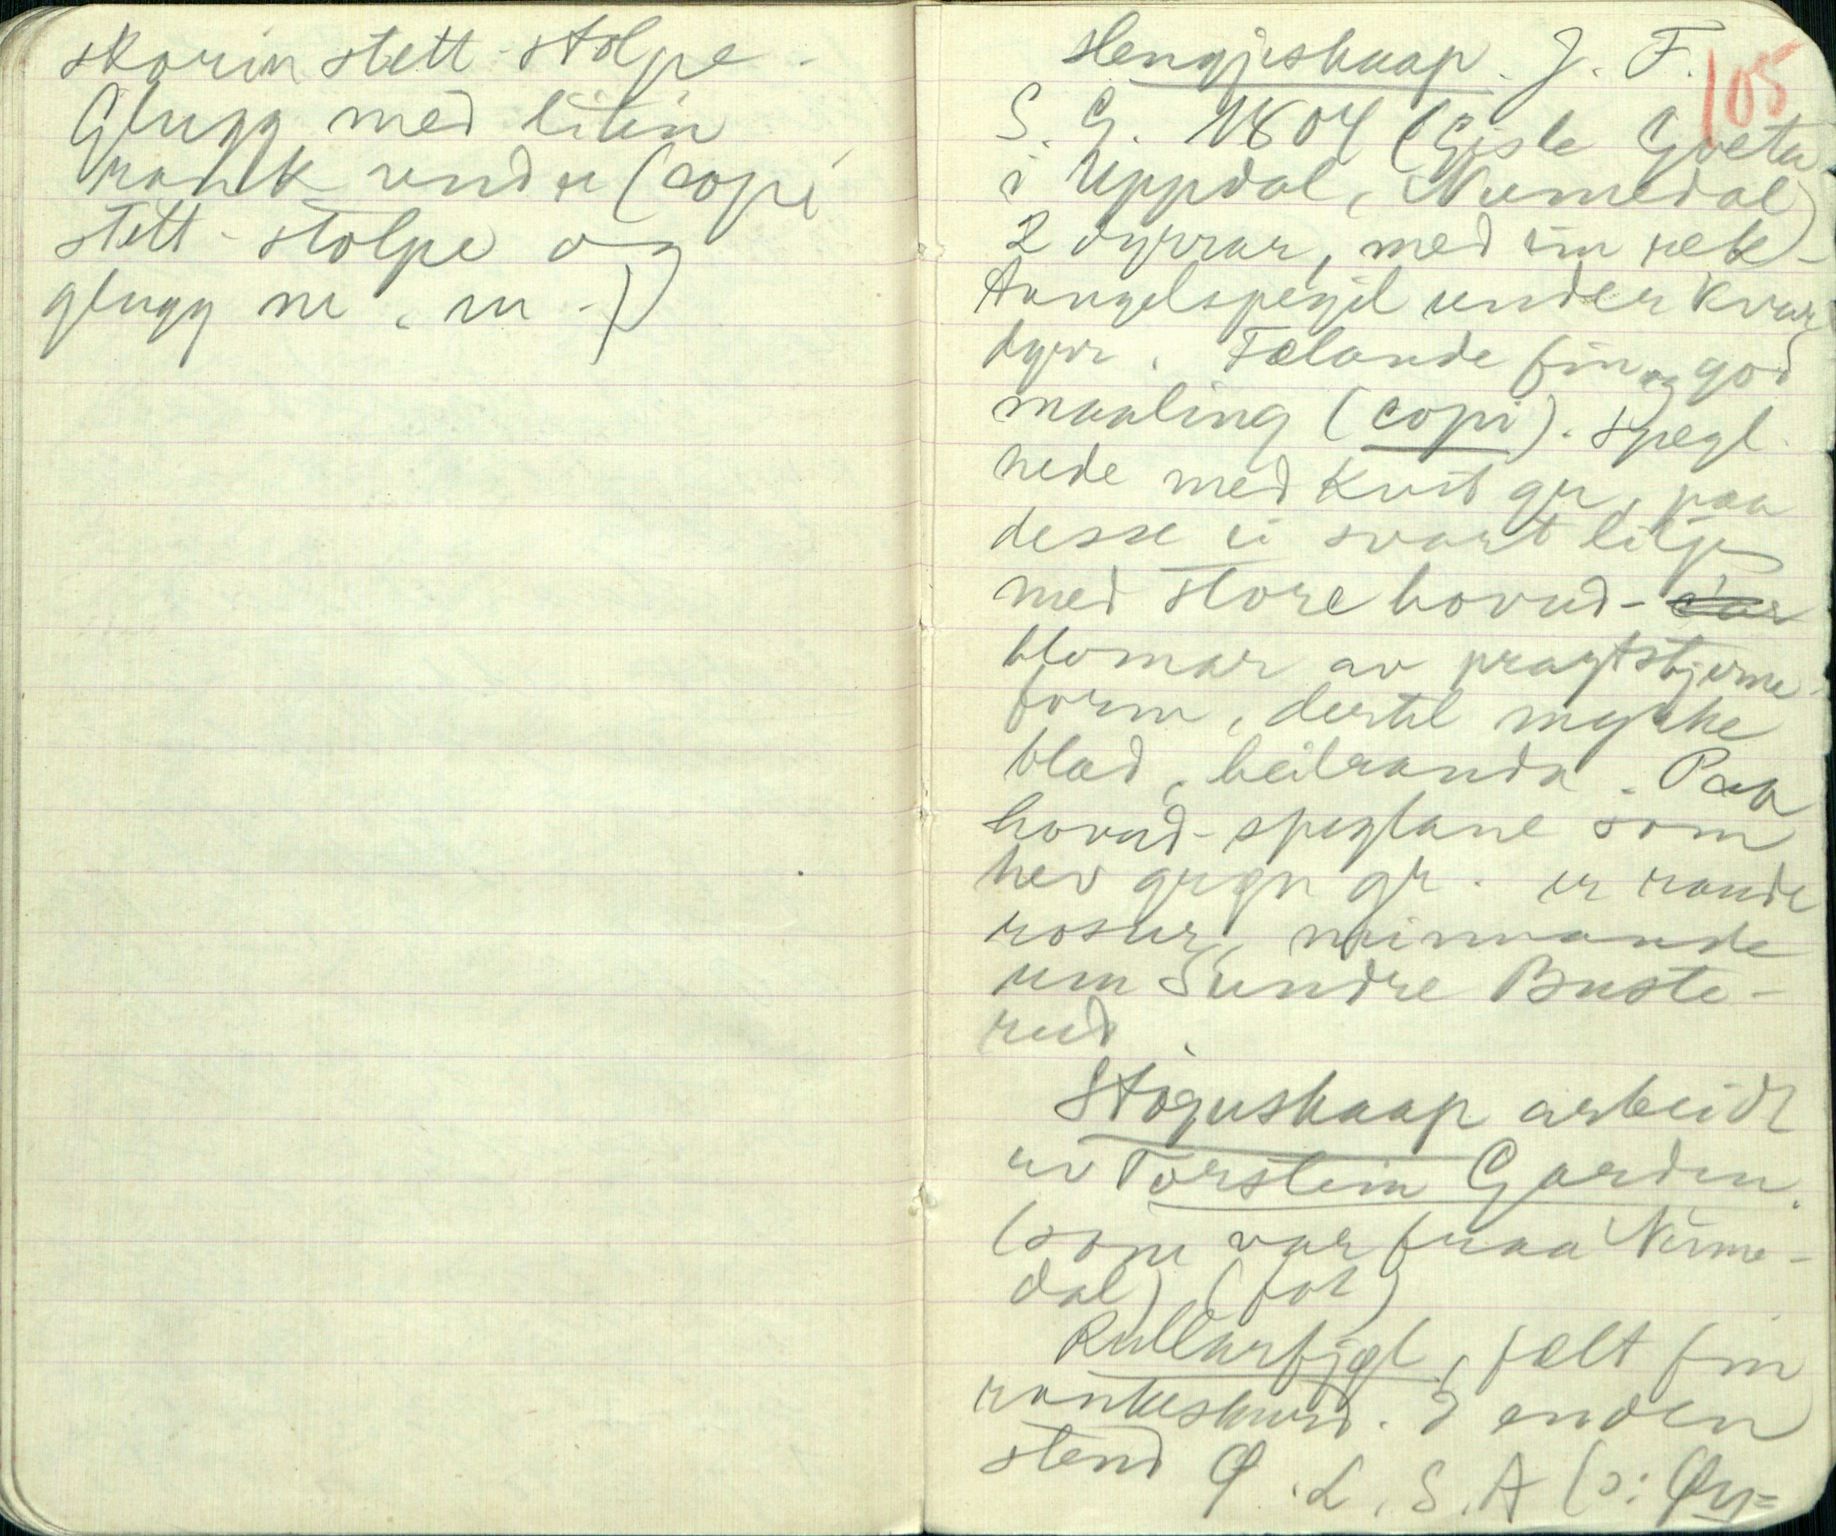 skorin stett-stolpe.
Glugg med liten
rank under (copi
stett-stolpe og
glugg m. m.)
105
Hengjeskaap. J. F.
S. G. 1804 (Gisle
i Uppdal, Numedal)
2 dyrrar, med ein rek-
tangelspegil under kvar
dyrr. Fælande fin og god
maaling (copi). Spegl.
nede med kvit gr, paa
desse ei svart lilje
med store hovud-
blomar av pragtstjerne-
form, dertil mykke
blad, heilranda. Paa
hovud-speglane som
hev grøn gr. er raude
rosur, minnande
um Sundre Buste-
rud.
Stoguskaap arbeidt
av Torstein Garden.
(som var fraa Nume-
dal) (fot)
Rullarfjøl, fælt fin
rankeskurd. I enden
stend Ø. L. S. A (ɔ: Øy=